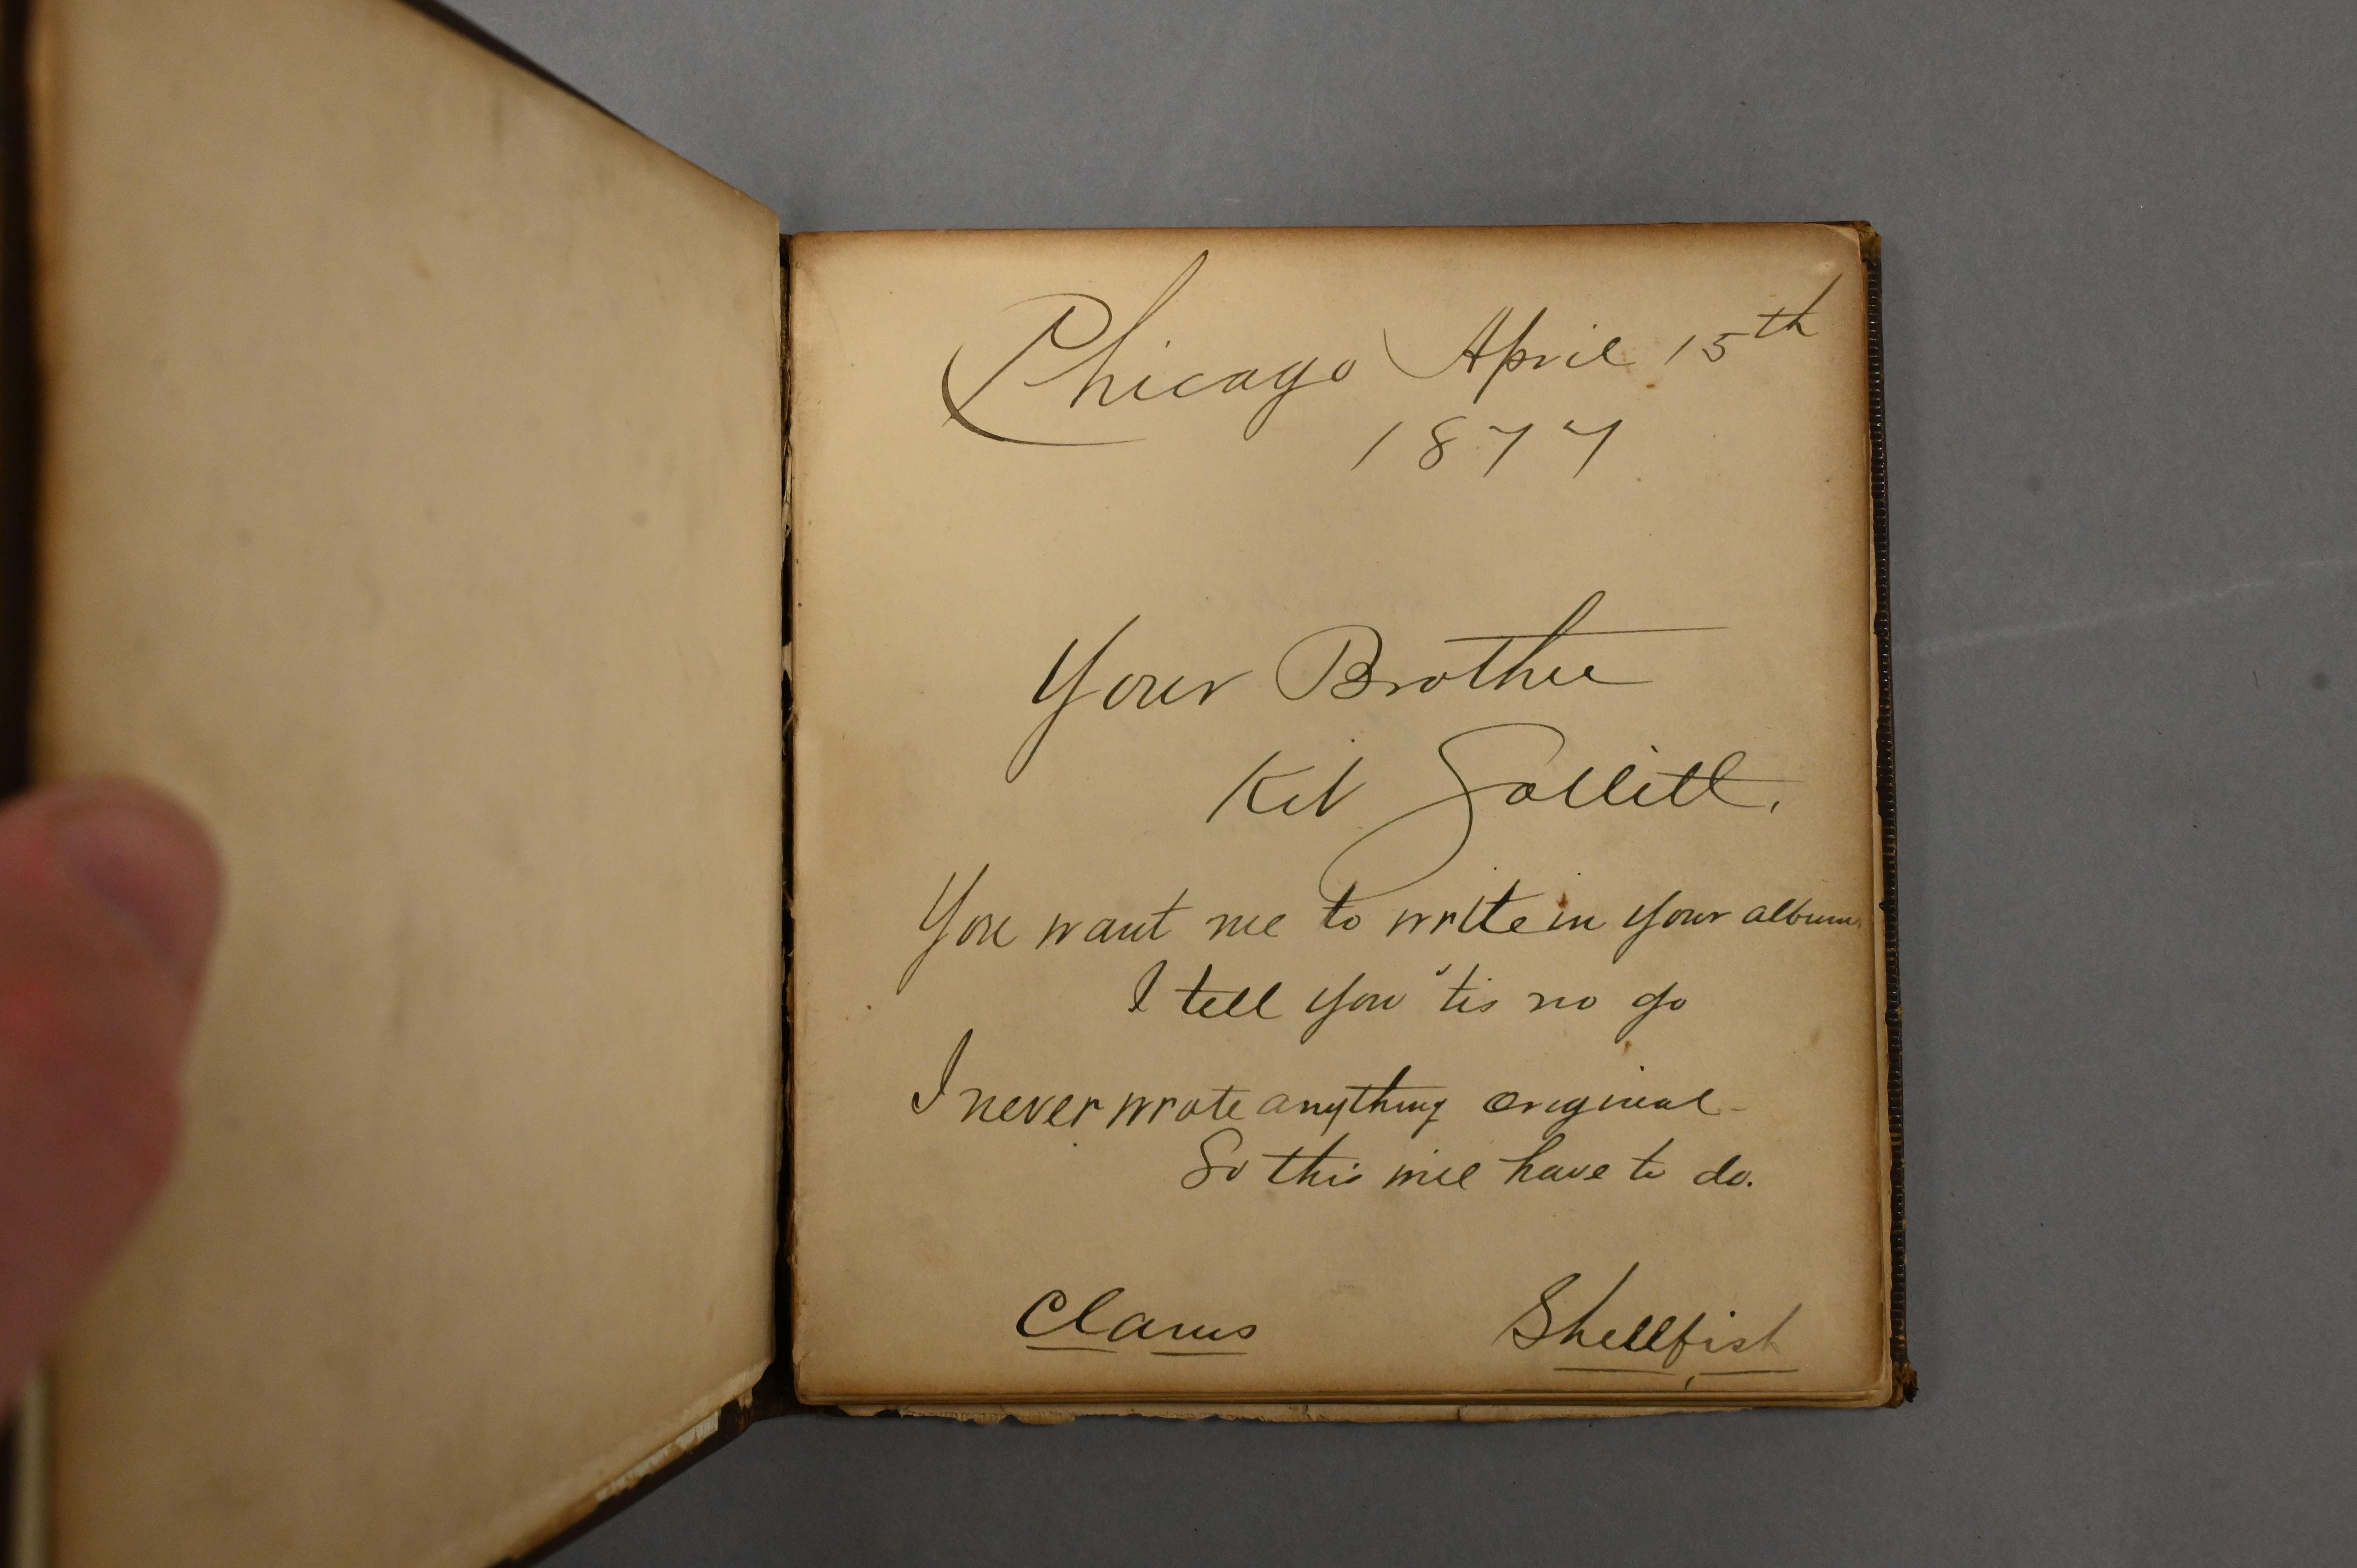 Chicago April 15th
1877
Your Brother
Kit Sollitt.
You want me to write in your album.
I tell you 'tis no go
I never wrote anything original
So this will have to do.
Clams Shellfish